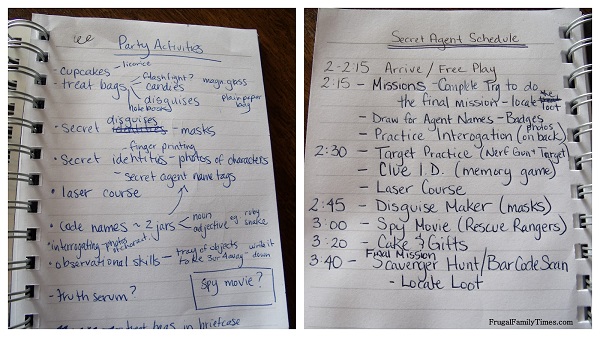 Party Activities
- cupcakes - licorice
- treat bags - flashlight? magn. glass
candies
disguises plain paper bag
notebooks
• Secret disguises identities - masks
- finger printing
• Secret identitis - photos of characters
- secret agent name tags
• laser course
• code names ~ 2 jars - noun
adjective eg. ruby snake
• interrogating - photos
• observational skills - tray of objects - write it down
take 3 or 4 away
- truth serum?
spy movie?
bags in briefcase
Secret Agent Schedule
2-2:15 Arrive / Free Play
2:15 - Missions - Complete Try to do
the final mission - locate the loot
- Draw for Agent Names - Badges
- Practice Interogation (photos on back)
2:30 - Target Practice (Nerf Gun + Target)
- Clue I.D. (memory game)
- Laser Course
2:45 - Disguise Maker (masks)
3:00 - Spy Movie (Rescue Rangers)
3:20 - Cake & Gifts
3:40 - Final Mission Scavenger Hunt/Bar Code Scan
- Locate Loot
FrugalFamilyTimes.com